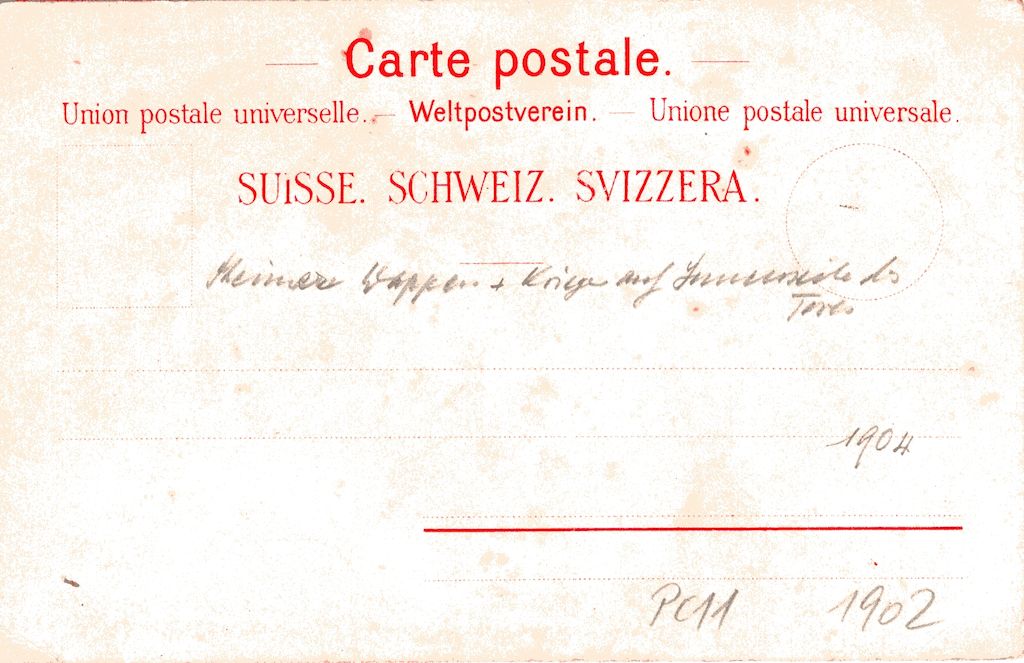 Carte postale.
Union postale universelle. — Weltpostverein. — Unione postale universale.
SUISSE. SCHWEIZ. SVIZZERA.
Wappen + Krieger auf Innenseite des
Tores
1904
PC11 1902